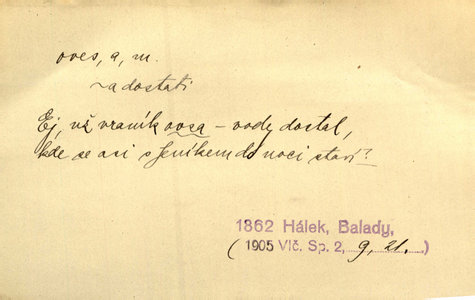 oves, a, m.
~a dostati
Ej, už vraník ovsa – vody dostal,
kde se asi s Jeníkem do noci staví?
1862 Hálek, Balady,
(1905 Vlč. Sp. 2, 9, 21.)